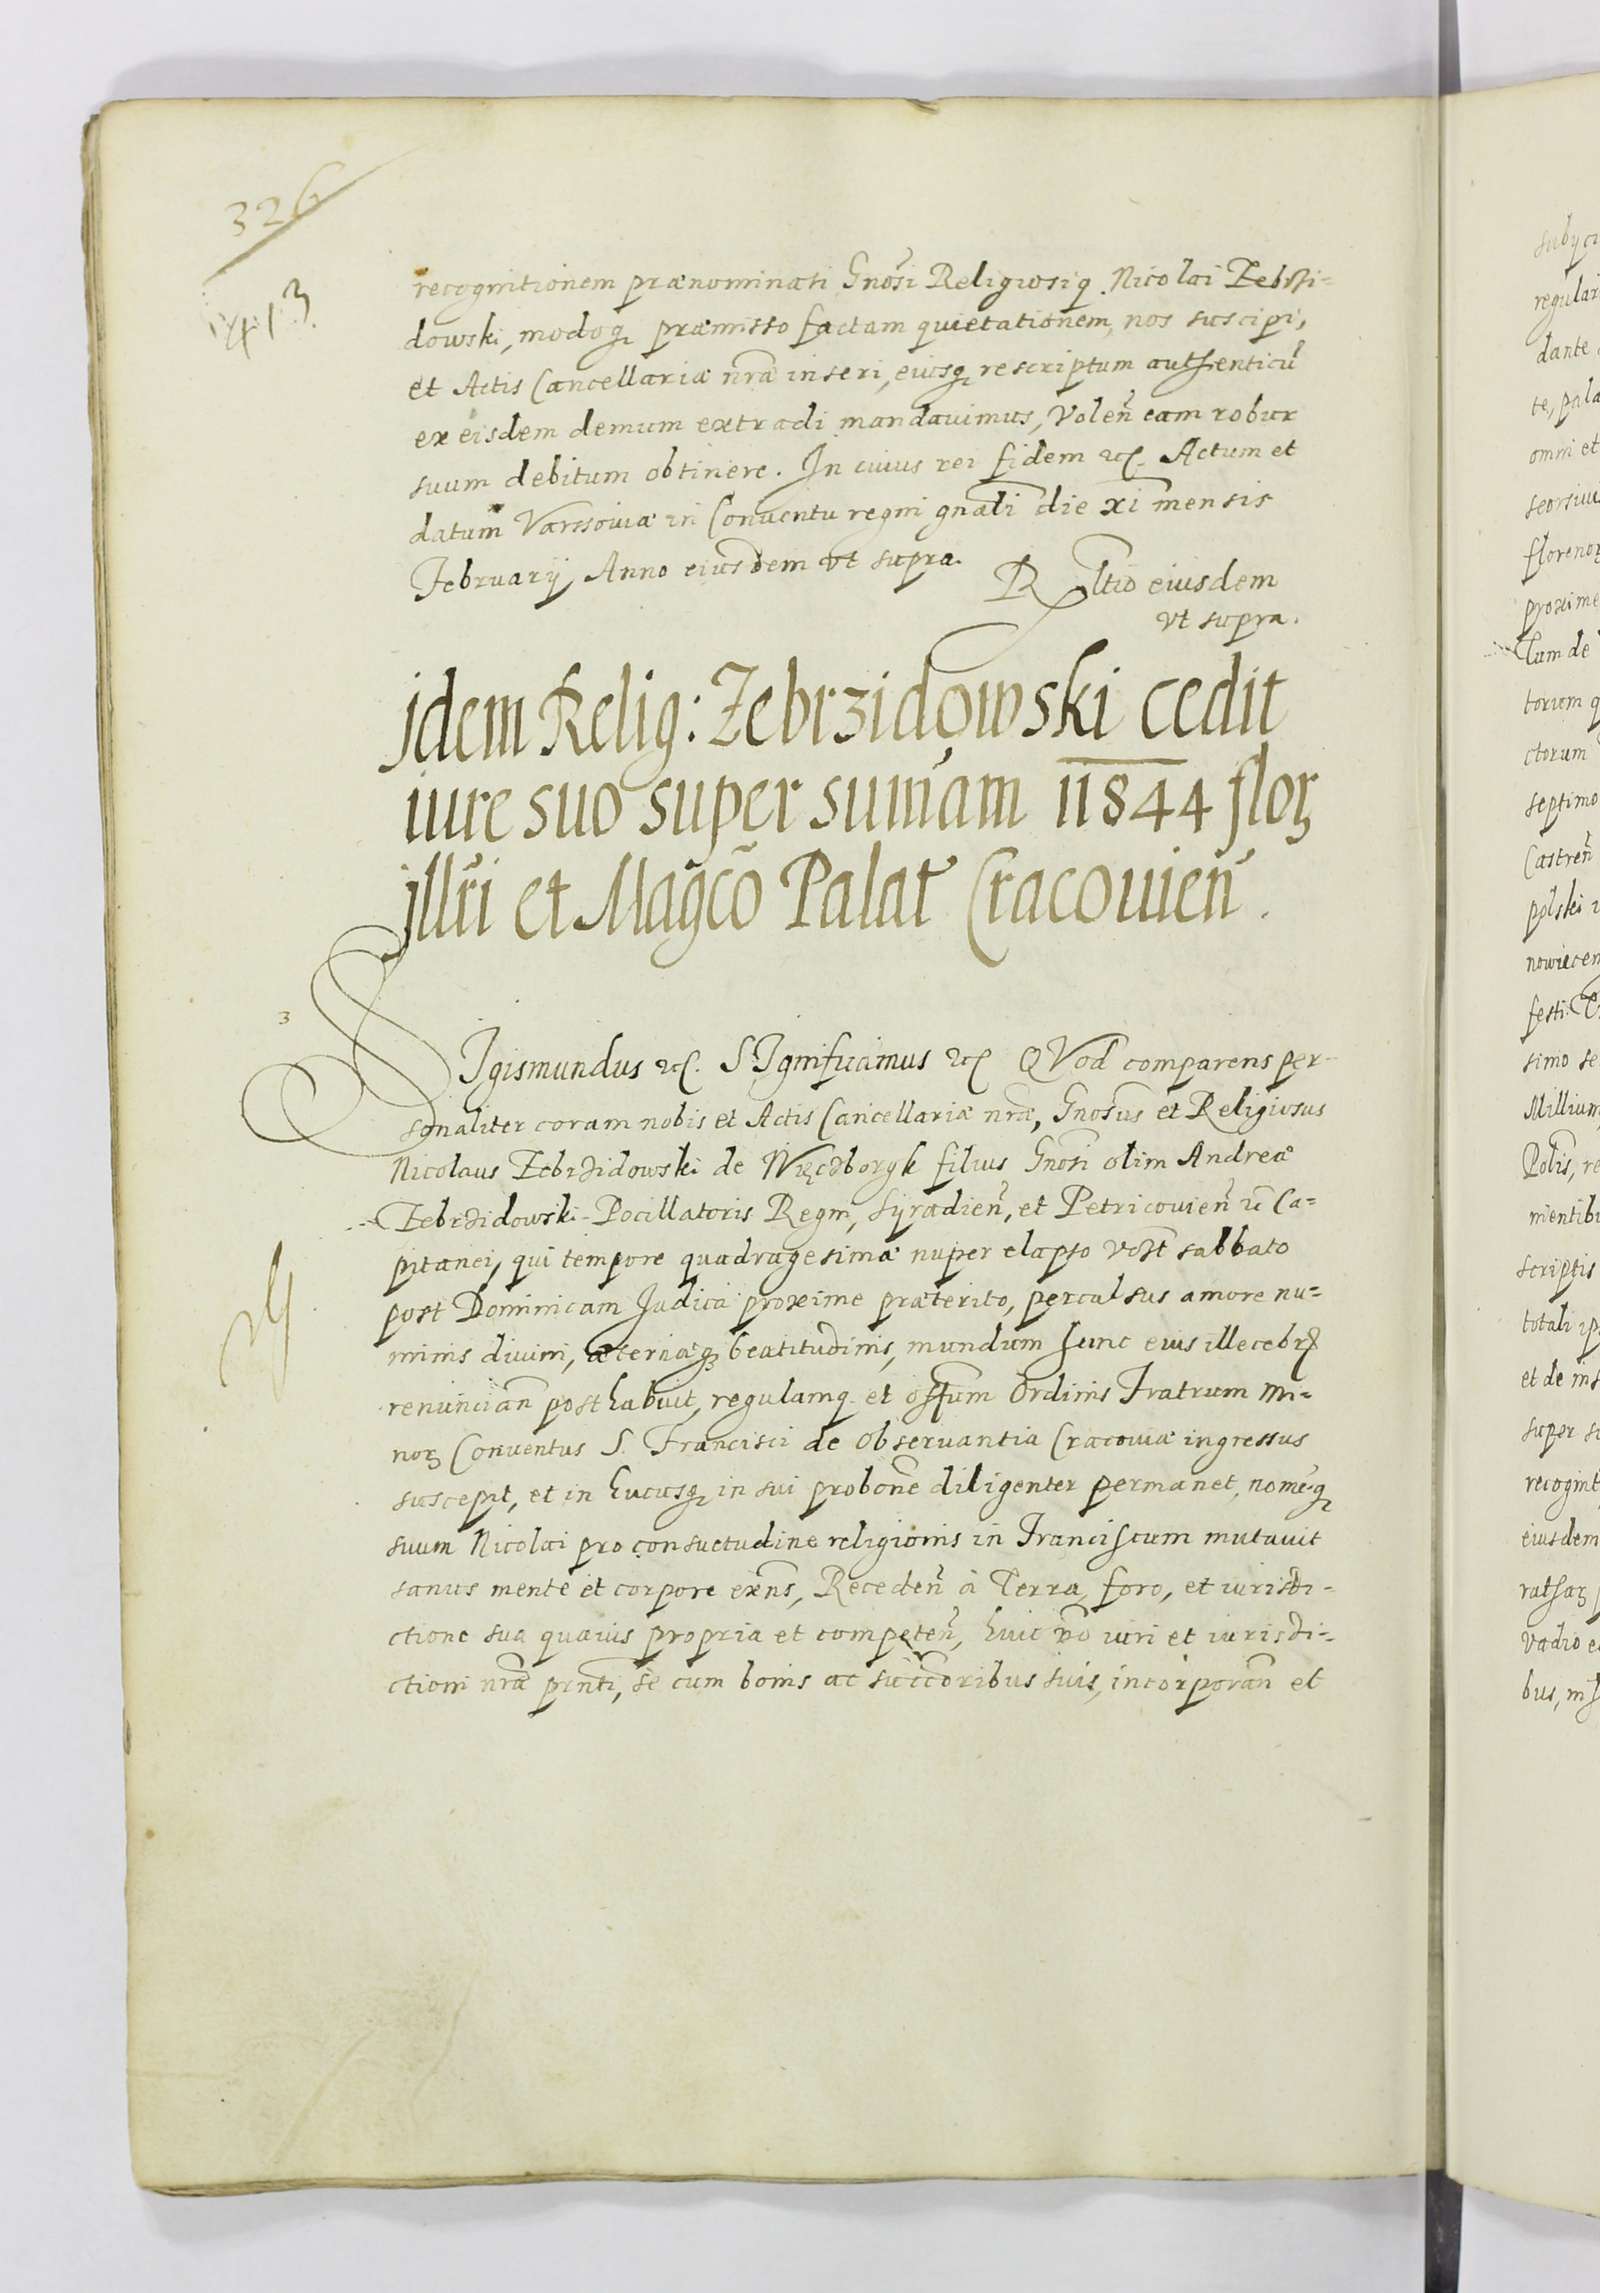 326
413
recognitionem prænominati Gnosi Religiosiq Nicolai Zebrzi-
dowski, modoq præmisso factam quietationem, nos suscipi,
et Actis Cancellariæ nræ inseri, eiusq rescriptum authenticũ
ex eisdem demum extradi mandauimus, Volen̄ eam robur
suum debitum obtinere. In cuius rei fidem etc. Actum et
datum Varssouiæ in Conuentu regni gnali die xi mensis
February, Anno eiusdem vt supra.
Rltio eiusdem
vt supra.
Idem Relig: Zebrzidowski cedit
iure suo super sum̄am 11844 floꝝ
illri et Magco Palat Cracouien̄.
3
SIgismundus etc. SIgnificamus etc QVod comparens per-
sonaliter coram nobis et Actis Cancellariæ nræ, Gnosus et Religiosus
Nicolaus Zebrzidowski de Więczborgk filius Gnosi olim Andreæ
Zebrzidowski Pocillatoris Regni, Syradien̄, et Petricouien̄ etc Ca-
pitanei, qui tempore quadragesimæ nuper elapso vest sabbato
post Dominicam Iudica proxime præterito, perculsus amore nu-
minis diuini, æternæq beatitudinis, mundum hunc eius illecebrꝭ
renuncian̄ posthabuit, regulamq et ostum Ordinis Fratrum Mi-
noꝝ Conuentus S. Francisci de Obseruantia Cracouiæ ingressus
suscepit, et in hucusq in sui probone diligenter permanet, nomeq
suum Nicolai pro consuetudine religionis in Franciscum mutauit
sanus mente et corpore exns, Receden̄ à Terra, foro, et iurisdi-
ctione sua quauis propria et competen̄, huic vo iuri et iurisdi-
ctioni nræ prnti, se cum bonis ac succoribus suis, incorporan̄ et